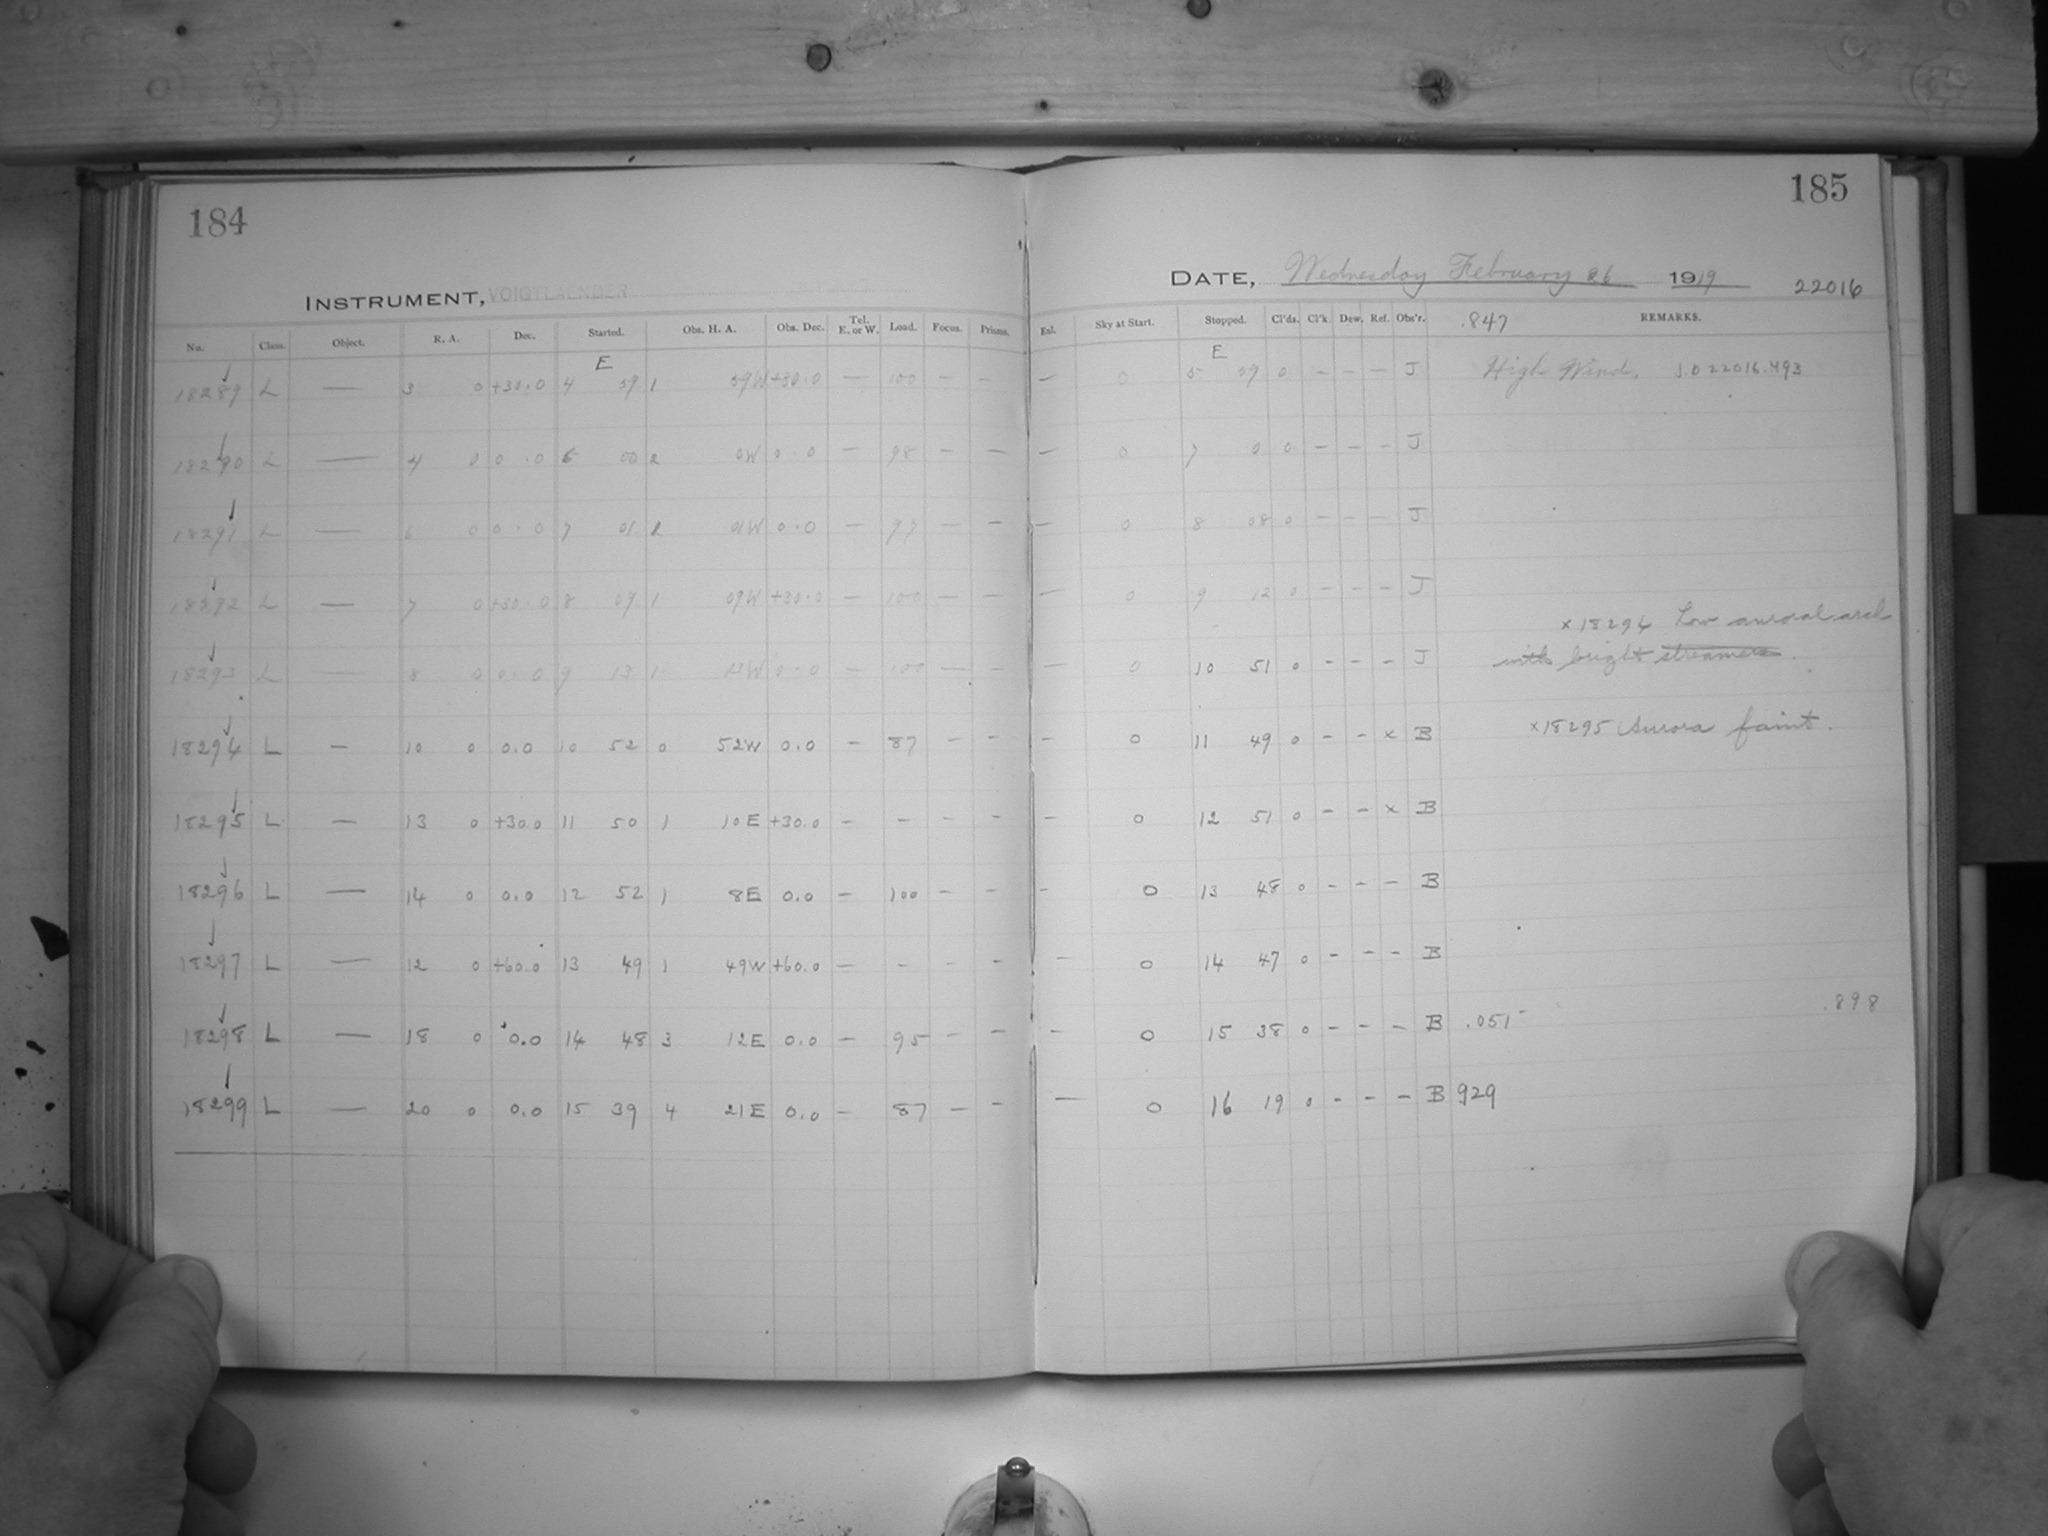 184
185
INSTRUMENT, VOIGTLAENDER
DATE, Wednesday February 26 1919 22016
No. Class. Object. R. A. Dec. Started. Obs. H. A. Obs. Dec. Tel. E. or W. Load. Focus. Prisms. Exl. Sky at Start. Stopped. Cl'ds. Cl'k. Dew. Ref. Obs'r. .847 REMARKS.
E E
18289 L — 3 0 +30.0 4 59 1 59W +30.0 — 100 — — — 0 5 59 0 — — — J High Wind. J.D 22016.493
18290 L — 4 0 0.0 6 00 2 0W 0.0 — 98 — — — 0 7 0 0 — — — J
18291 L — 6 0 0.0 7 01 1W 0.0 — 97 — — — 0 8 08 0 — — — J
18292 L — 7 0 +30.0 8 09 1 09W +30.0 — 100 — — — 0 9 12 0 — — — J
x 18294 Low auroral arch
18293 L — 8 0 0.0 9 13 1 13W 0.0 — 100 — — — 0 10 51 0 — — — J with bright streamers.
18294 L — 10 0 0.0 10 52 0 52W 0.0 — 87 — — — 0 11 49 0 — — x B x18295 Aurora faint.
18295 L — 13 0 +30.0 11 50 1 10E +30.0 — — — — — 0 12 51 0 — — x B
18296 L — 14 0 0.0 12 52 1 8E 0.0 — 100 — — — 0 13 48 0 — — — B
18297 L — 12 0 +60.0 13 49 1 49W +60.0 — — — — — 0 14 47 0 — — — B
18298 L — 18 0 0.0 14 48 3 12E 0.0 — 95 — — — 0 15 38 0 — — — B .051 .898
18299 L — 20 0 0.0 15 39 4 21E 0.0 — 87 — — — 0 16 19 0 — — — B 929